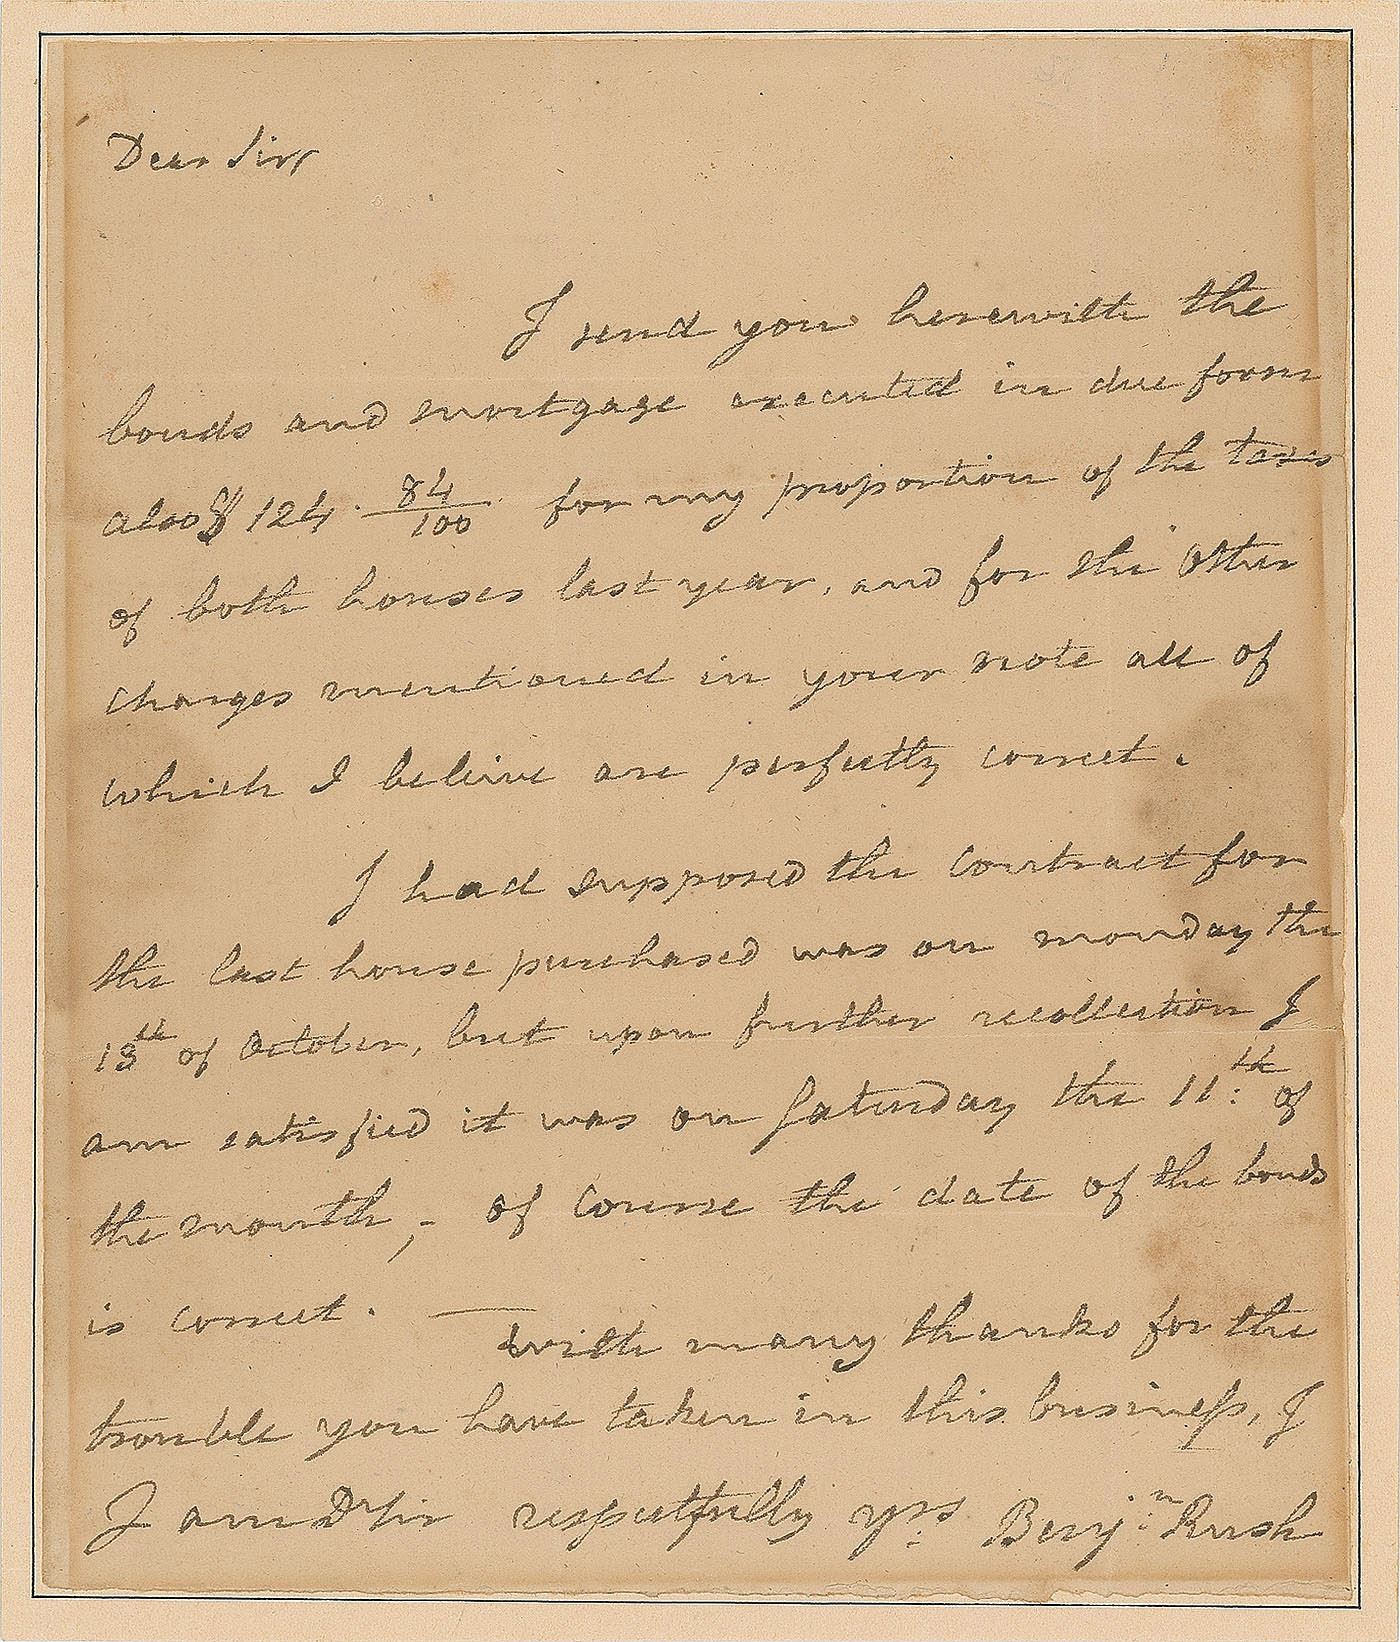 Dear Sir
I send you herewith the
bonds and mortgage executed in due form
also $ 124. 84/100 for my proportion of the taxes
of both houses last year, and for the Other
charges mentioned in your note all of
which I beleive are perfectly correct.
I had supposed the Contract for
the last house purchased was on monday the
13th of October, but upon further recollection I
am satisfied it was on Saturday the 11:th of
the month,- of Course the date of the bonds
is correct. —
with many thanks for the
trouble you have taken in this business, I
I am Dr Sir respectfully yrs Benjn: Rush